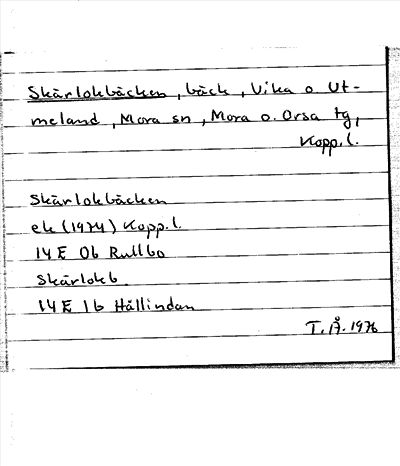 Skärlokbäcken, bäck, Vika o. Ut-
meland, Mora sn, Mora o. Orsa tg,
Kopp. l.
Skärlokbäcken
ek (1974) Kopp. l.
14 E 0b Rullbo
Skärlokb.
14 E 1b Hållindan
T. Å. 1976